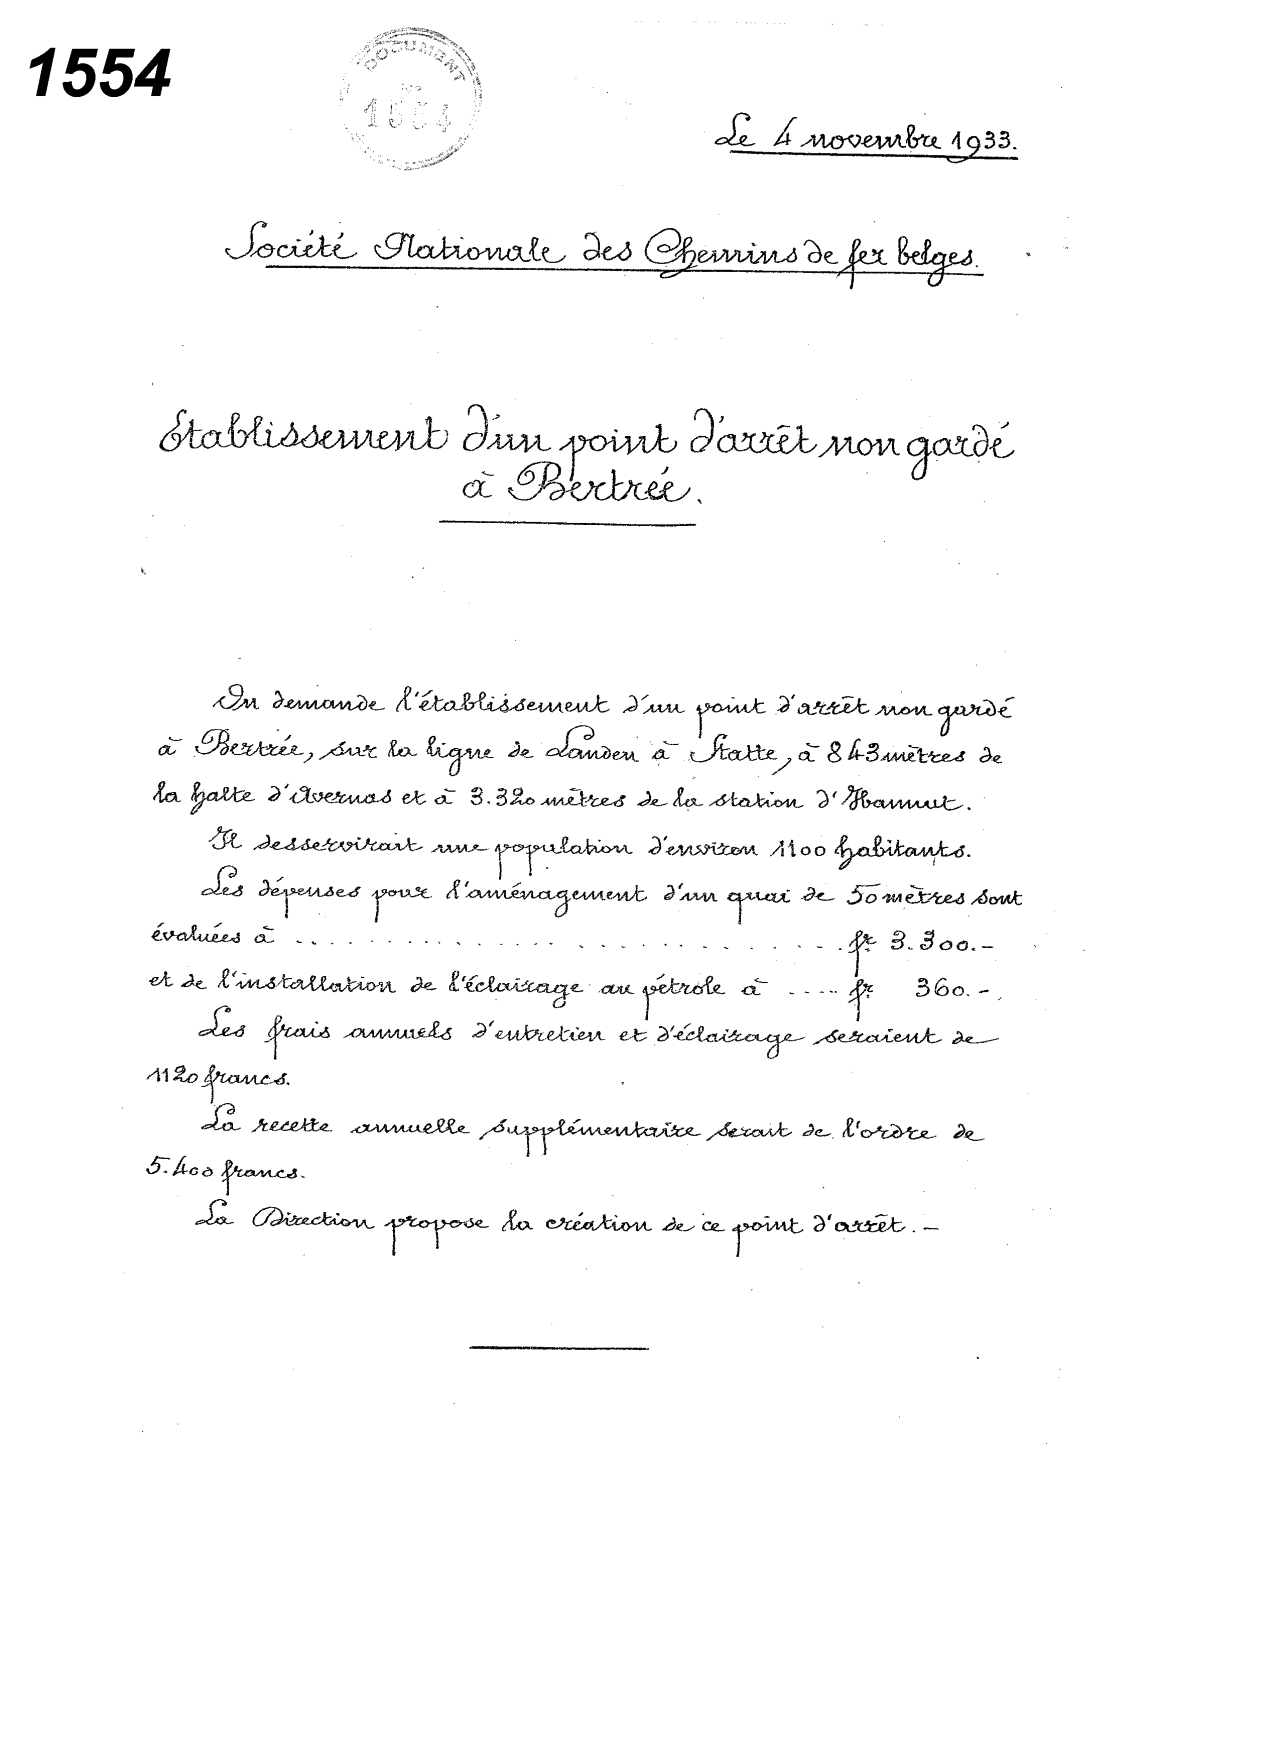 1554
DOCUMENT
No
1554
Le 4 novembre 1933.
Société Nationale des Chemins de fer belges.
Etablissement d'un point d'arrêt non gardé
à Bertrée.
On demande l'établissement d'un point d'arrêt non gardé
à Bertrée, sur la ligne de Landen à Statte, à 843 mètres de
la halte d'Avernas et à 3.320 mètres de la station d'Hannut.
Il desservirait une population d'environ 1100 habitants.
Les dépenses pour l'aménagement d'un quai de 50 mètres sont
évaluées à .............................. fr 3.300.-
et de l'installation de l'éclairage au pétrole à ..... fr 360.-.
Les frais annuels d'entretien et d'éclairage seraient de
1120 francs.
La recette annuelle supplémentaire serait de l'ordre de
5.400 francs.
La Direction propose la création de ce point d'arrêt.-